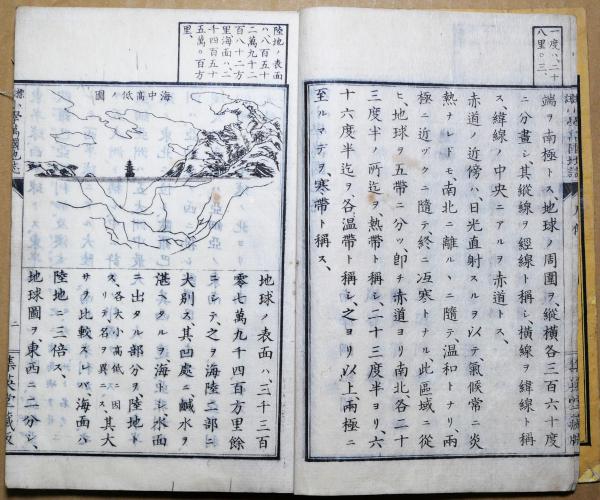 一度ハ、二十
八里〇三、
端ヲ南極トス、地球ノ周圍ヲ、縱橫各三百六十度
ニ分畫シ、其縱線ヲ經線ト稱シ、橫線ヲ緯線ト稱
ス、緯線ノ中央ニアルヲ赤道トス、
赤道ノ近傍ハ、日光直射スルヲ以テ、氣候常ニ炎
熱ナレドモ、南北ニ離ルヽニ隨テ溫和トナリ、兩
極ニ近ヅクニ隨テ、終ニ冱寒トナル、此區域ニ從
ヒ、地球ヲ五帶ニ分ツ、卽チ赤道ヨリ南北、各二十
三度半ノ所迄ヲ、熱帶ト稱シ、二十三度半ヨリ、六
十六度半迄ヲ、各溫帶ト稱シ、之ヨリ以上、兩極ニ
至ルマデヲ、寒帶ト稱ス、
陸地ノ表面
ハ八百五十
二萬九十二
百八十二方
里海面ハ、二
千四百五十
五萬〇百方
里、
海中高低ノ圖
地球ノ表面ハ、三千三百
零七萬九千四百方里餘
ニシテ、之ヲ海陸二部ニ
大別ス、其凹處ニ鹹水ヲ
湛ヘタルヲ海トシ、水面
ニ出タル部分ヲ、陸地ト
ス、各大小高低ニ因
リテ、名ヲ異ニス、其大
サヲ比較スレバ、海面ハ
陸地ニ三倍ス、
地球圖ヲ、東西ニ二分シ、
小學萬國地誌
二
集英堂藏版